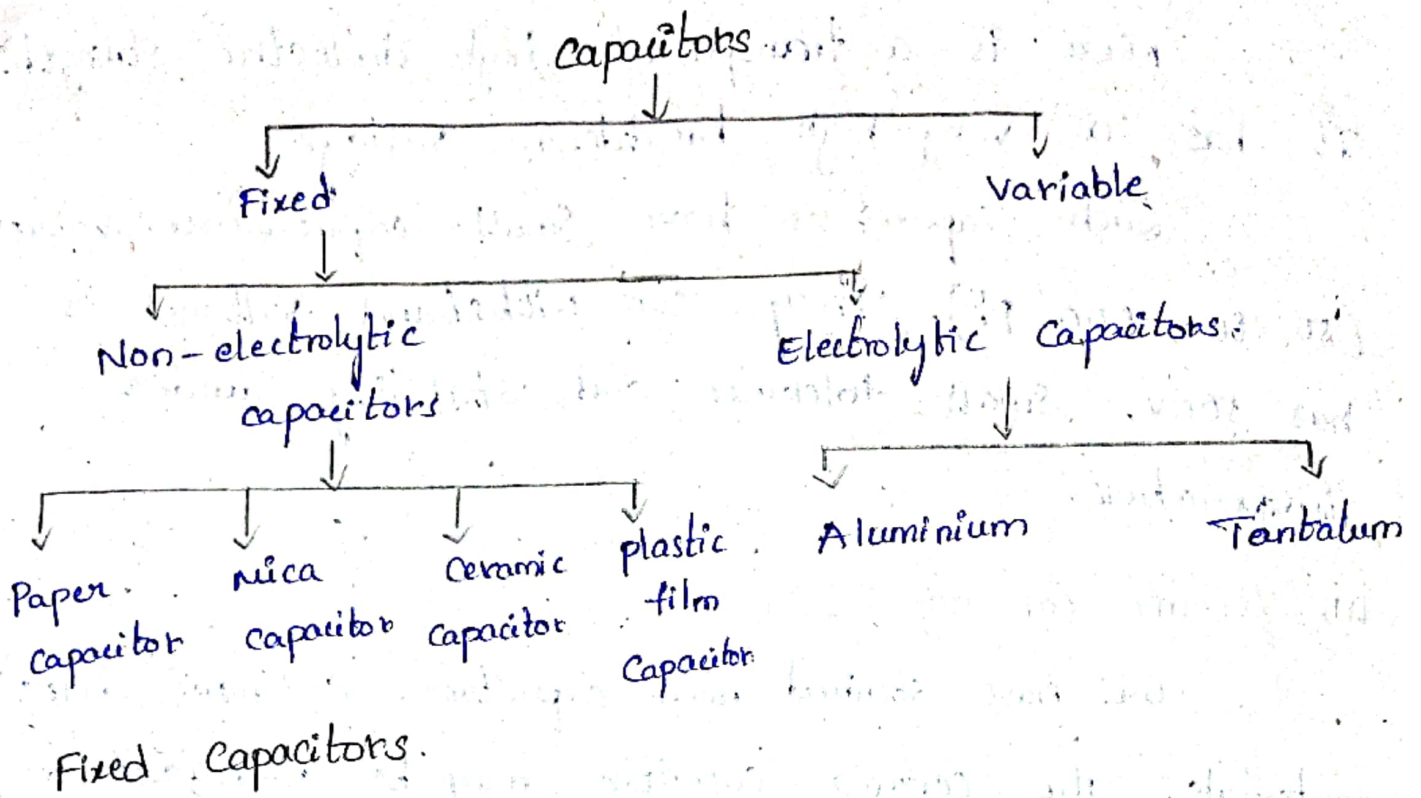 Capacitors
Fixed
Variable
Non-electrolytic
capacitors
Electrolytic Capacitors.
Paper
capacitor
Mica
capacitor
Ceramic
capacitor
plastic
film
Capacitor
Aluminium
Tantalum
Fixed Capacitors.